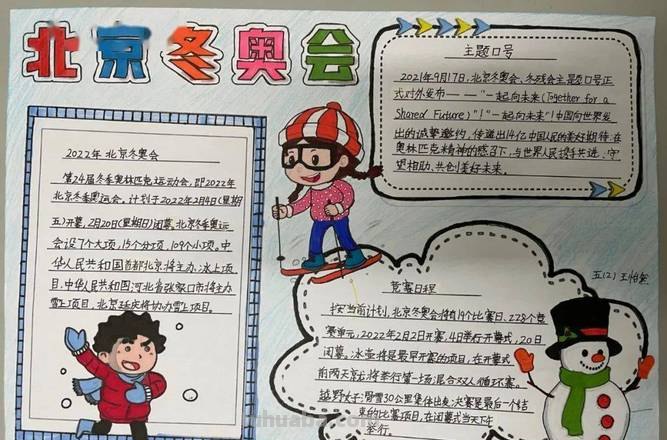 北京冬奥会
主题口号
2021年9月17日,北京冬奥会、冬残会主题口号正
式对外发布——"一起向未来(Together for a
Shared Future)"!"一起向未来"!中国向世界发
出的诚挚邀约,传递出14亿中国人民的美好期待:在
奥林匹克精神的感召下,与世界人民携手共进、守
望相助、共创美好未来
2022年 北京冬奥会
第24届冬季奥林匹克运动会,即2022年
北京冬季奥运会,计划于2022年2月4日(星期
五)开幕,2月20日(星期日)闭幕,北京冬季奥运
会设7个大项,15个分项,109个小项。中
华人民共和国首都北京将主办冰上项
目,中华人民共和国河北省张家口市将主办
雪上项目,北京延庆将协办雪上项目。
五(2) 王怡
竞赛日程
按当前计划,北京冬奥会将有19个比赛日,228个竞
赛单元,2022年2月2日开赛,4日举行开幕式,20日
闭幕。冰壶将是最早开赛的项目,在开幕式
前两天就将举行第一场混合双人循环赛。
越野女子滑雪30公里集体出发决赛是最后一个结
束的比赛项目,在闭幕式当天下午
举行。